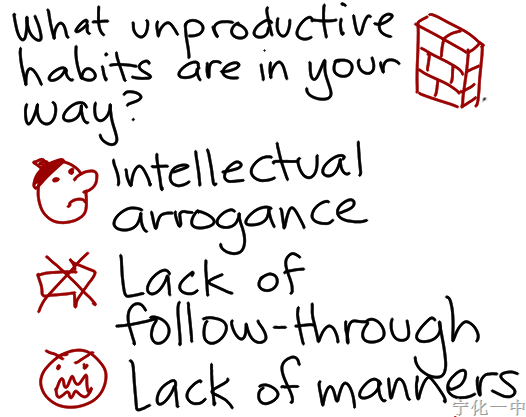 What unproductive
habits are in your
way?
Intellectual
arrogance
Lack of
follow-through
Lack of manners
宁化一中